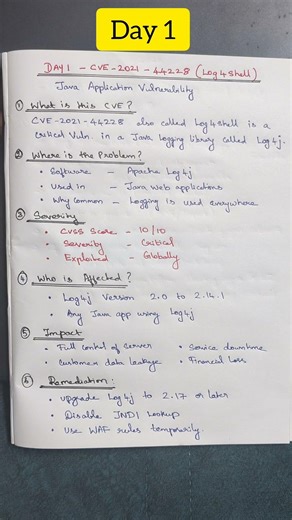 Day 1
DAY 1 - CVE-2021-44228 (Log4Shell)
Java Application Vulnerability
① What is this CVE?
CVE-2021-44228 also called Log4Shell is a
critical Vuln. in a Java logging library called Log4j.
② Where is the Problem?
• Software - Apache Log4j
• Used in - Java web applications
• Why common - Logging is used everywhere
③ Severity
• CVSS Score - 10/10
• Severity - Critical
• Explained - Globally
④ Who is Affected?
• Log4j Version 2.0 to 2.14.1
• Any Java app using Log4j
⑤ Impact
• Full control of Server • Service downtime
• Customer data leakage • Financial Loss
⑥ Remediation:
• Upgrade Log4j to 2.17 or later
• Disable JNDI Lookup
• Use WAF rules temporarily.